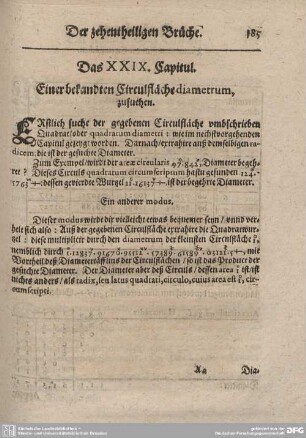 Der zehentheiligen Brüche.
185
Das XXIX. Capitul.
Einer bekandten Circulfläche diametrum,
zusuchen.
ERstlich suche der gegebenen Circulfläche umbschrieben
Quadrat oder quadratum diametri : wie im nechstvorgehenden
Capitul gezeigt worden. Darnach extrahire auß demselbigen ra-
dicem, die ist der gesuchte Diameter.
Zum Exempel wird der areæ circularis 97. 842. Diameter begeh-
ret ? Dieses Circuls quadratum circumscriptum hastu gefunden 124.
dessen gevierdte Wurtzel ist der begehrte Diameter.
Ein anderer modus.
Dieser modus wirdt dir vielleicht etwas bequemer seyn / unnd ver-
helt sich also : Auß der gegebenen Circulfläche extrahire die Quadratwur-
tzel : diese multiplicir durch den diametrum der kleinsten Circulfläche
nemblich durch mit
Vortheil deß Diameter auß der Circulflächen / so ist das Product der
gesuchte Diameter. Der Diameter aber deß Circuls / dessen area ist / ist
nichts anders / als radix, seu latus quadrati, circulo, cuius area est cir-
cumscripti.
Aa
Dia-